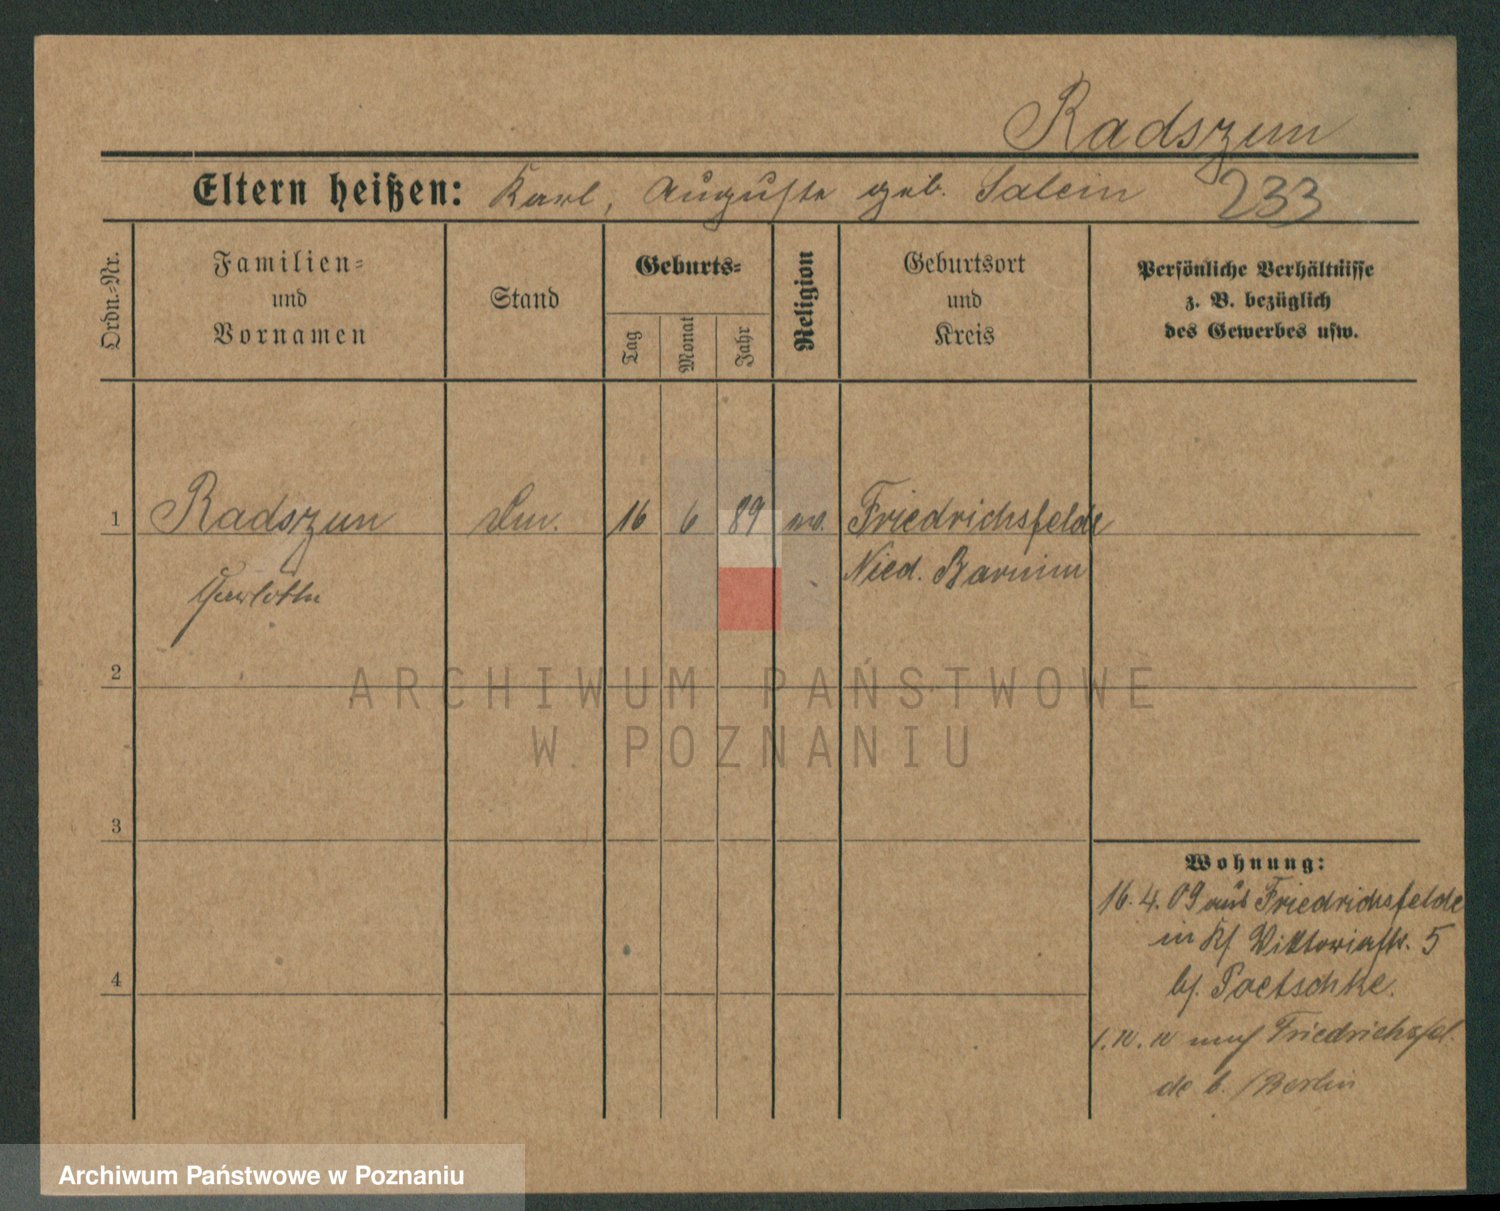 Radszun
Eltern heißen: Karl, Auguste geb. Salein 233
Ordn.-Nr.
Familien-
und
Vornamen
Stand
Geburts-
Tag
Monat
Jahr
Religion
Geburtsort
und
Kreis
Persönliche Verhältnisse
z. B. bezüglich
des Gewerbes usw.
1 Radszun 16 6 89 ev. Friedrichsfelde
Charlotte Nied. Barnim
2
3
4
Wohnung:
16.4.09 aus Friedrichsfelde
in Viktoriastr. 5
bf. Paetschke.
nach Friedrichsfel
de b. Berlin
ARCHIWUM PAŃSTWOWE
W POZNANIU
Archiwum Państwowe w Poznaniu